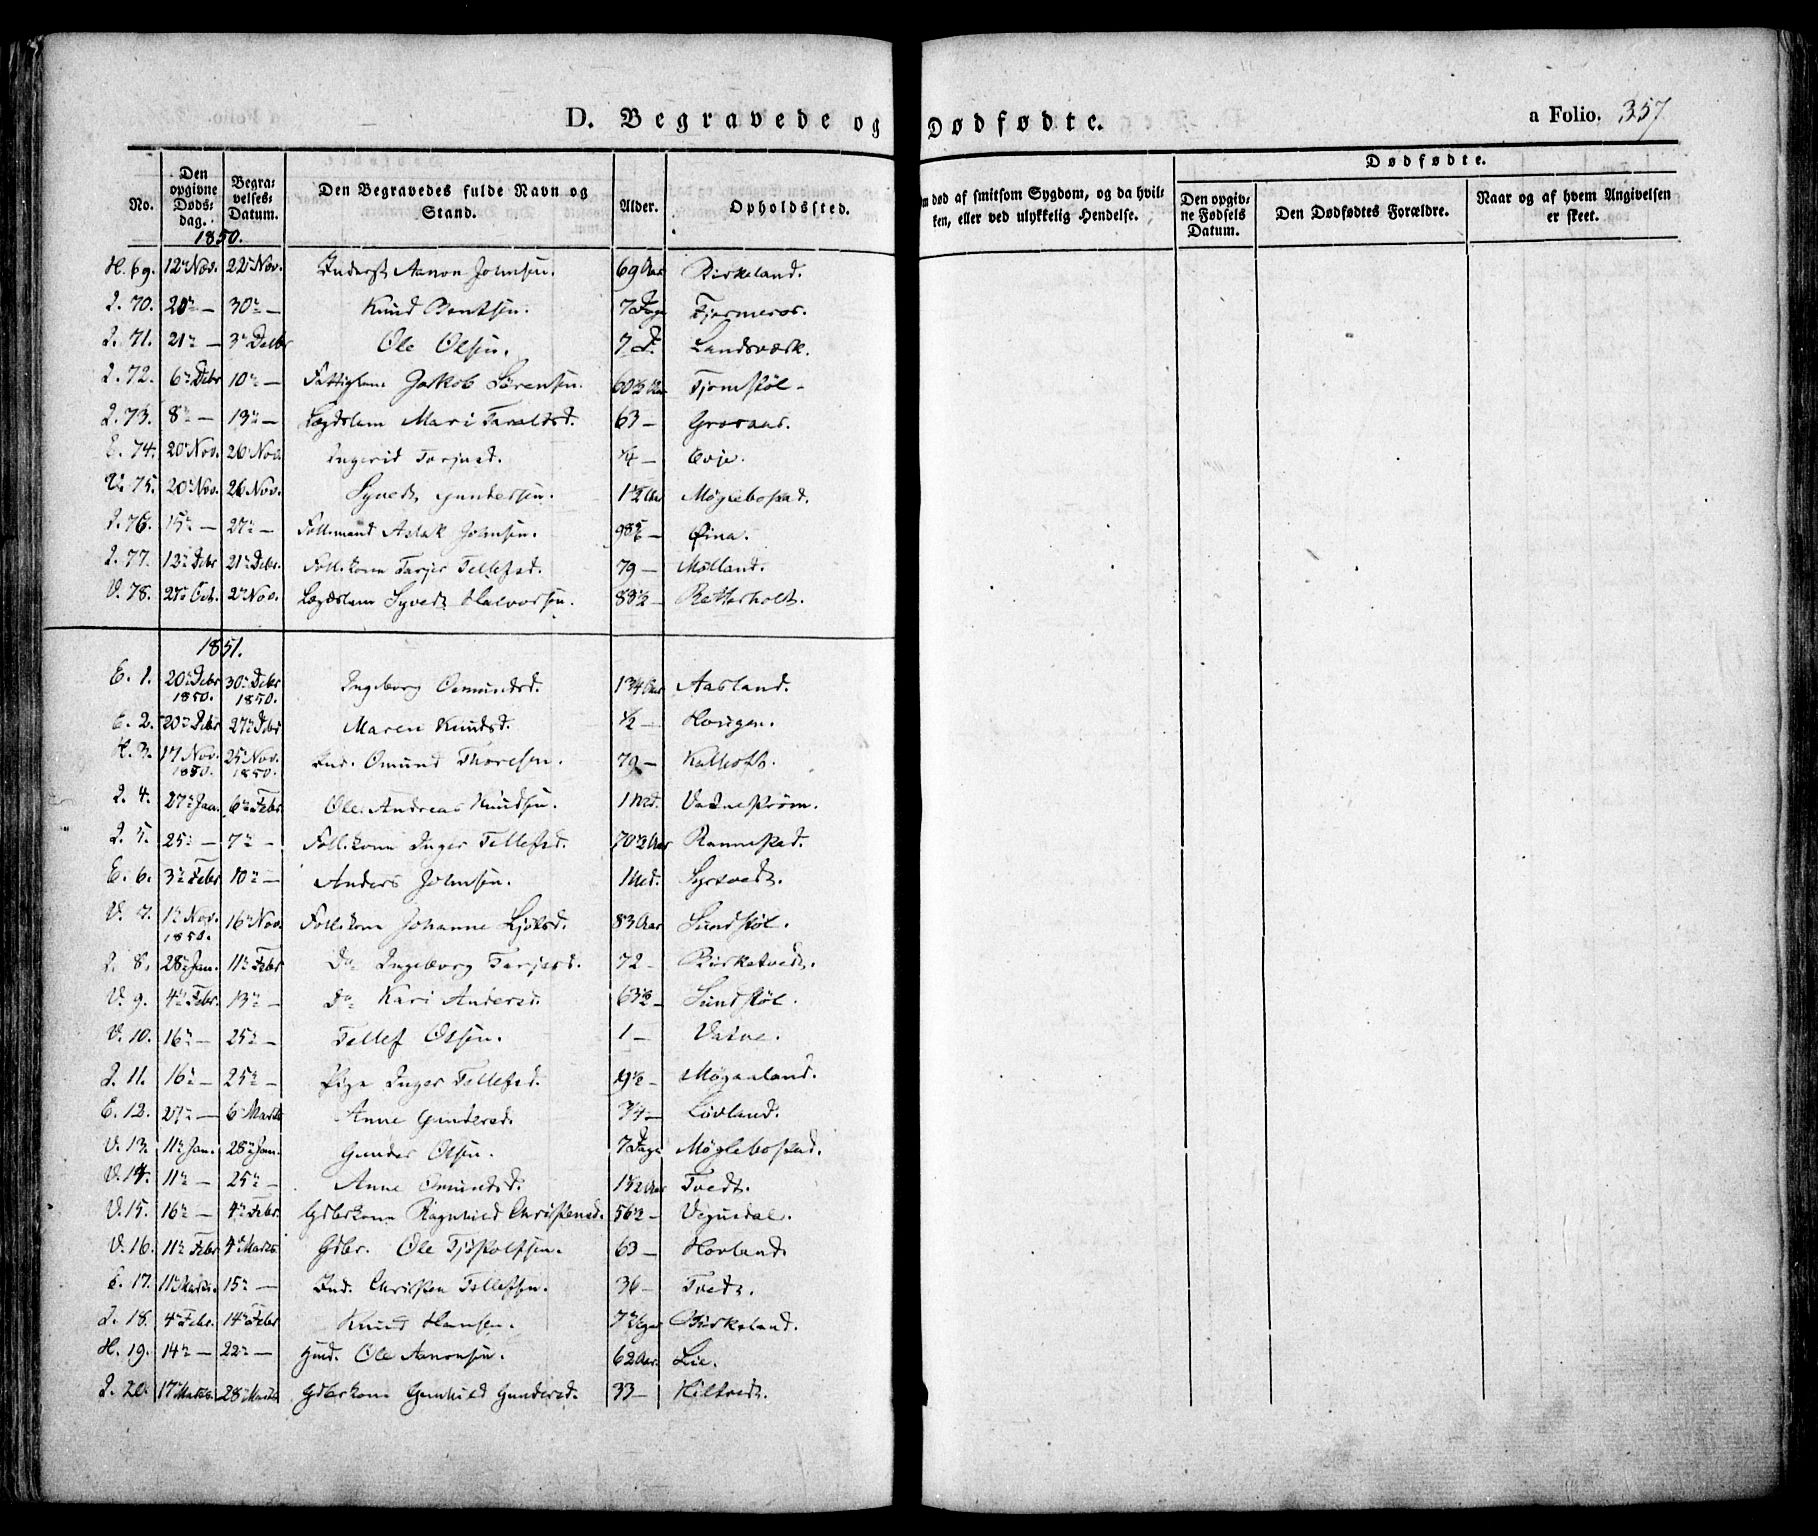 D. Begravede og Dødfødte.
a Folio. 357
No.
Den opgivne Døds-dag.
Begra-velses-Datum.
Den Begravedes fulde Navn og Stand.
Alder.
Opholdssted.
m død af smitsom Sygdom, og da hvil-ken, eller ved ulykkelig Hendelse.
Dødfødte.
Den opgiv-ne Fødsels Datum.
Den Dødfødtes Forældre.
Naar og af hvem Angivelsen er skeet.
1850.
H. 69. 12 Nov. 22 Nov. Inderst Aanon Johnsen. 69 Aar Birkeland.
I. 70. 20 — 30 — Knud Bentsen. 7 Dage Fjermeros.
I. 71. 21 — 3 Decbr Ole Olsen. 7 D. Landsværk.
I. 72. 6 Debr 10 — Fattiglem Jakob Sørensen. 60½ Aar Tjomstøl
I. 73. 8 — 13 — Lægdslem Mari Taraldsd. 63 — Grosaas.
E. 74. 20 Nov. 26 Nov. Ingerid Tarjesd. ¼ — Evje.
V. 75. 20 Nov. 26 Nov. Syvert Gundersen. 1½ Aar Møglebostad.
I. 76. 15 — 27 — Follmand Aslak Johnsen. Øina.
I. 77. 12 Debr 21 Debr. Follkone Tarjer Tellefsd. 79 — Mølland.
V. 78. 27 Oct. 2 Nov. Lægdslem Syvert Halvorsen. 83½ — Retterholt.
1851.
E. 1. 20 Debr 1850. 30 Debr 1850. Ingeborg Osmundsd. 1¾ Aar Aasland.
E. 2. 20 Debr 27 Debr Maren Knudsd. ½ — Hougen.
H. 3. 17 Nov. 1850. 25 Nov. 1850. Ind. Omund Thoresen. 79 — Kalholt.
I. 4. 27 Jan. 6 Febr. Ole Andreas Knudsen. 1 Md. Vatnestrøm.
I. 5. 25 — 7 — Follkone Inger Tellefsd. 70½ Aar Rannestad.
E. 6. 3 Febr 10 — Anders Johnsen. 1 Md. Syrtvedt.
V. 7. 1 Nov. 1850. 16 Nov. Follkone Johanne Ljotsd. 83 Aar Sundstøl.
I. 8. 28 Jan. 11 Febr Do Ingeborg Tarjesd. 72 — Birketvedt.
V. 9. 4 Febr. 13 — Do Kari Andersd. 63½ — Sundstøl.
V. 10. 16 — 25 — Tellef Olsen. 1 — Vatne.
I. 11. 16 — 25 — Pige Inger Tellefsd. Møgaaland.
E. 12. 27 — 6 Marts Anne Gundersd. ¾ — Løvland.
V. 13. 11 Jan. 28 Jan. Gunder Olsen. 7 Dage Møglebostad.
V. 14. 11 — 25 — Anne Omundsd. 1½ Aar Tvedt.
V. 15. 16 — 4 Febr. Gdbrkone Ragnhild Christensd. 56½ — Vegusdal.
V. 16. 11 Febr 4 Marts. Gdbr. Ole Tjøstolfsen. 63 — Hovland.
E. 17. 11 Marts. 15 — Ind. Christen Tellefsen. 36 — Tvedt.
I. 18. 4 Febr. 14 Febr Knud Hansen. 7 Uger Birkeland.
H. 19. 14 — 22 — Hmd. Ole Aanonsen. 62 Aar. Lie.
I. 20. 17 Marts. 28 Marts Gdbrkone Gunhild Gundersd. 33 — Hiltvedt.